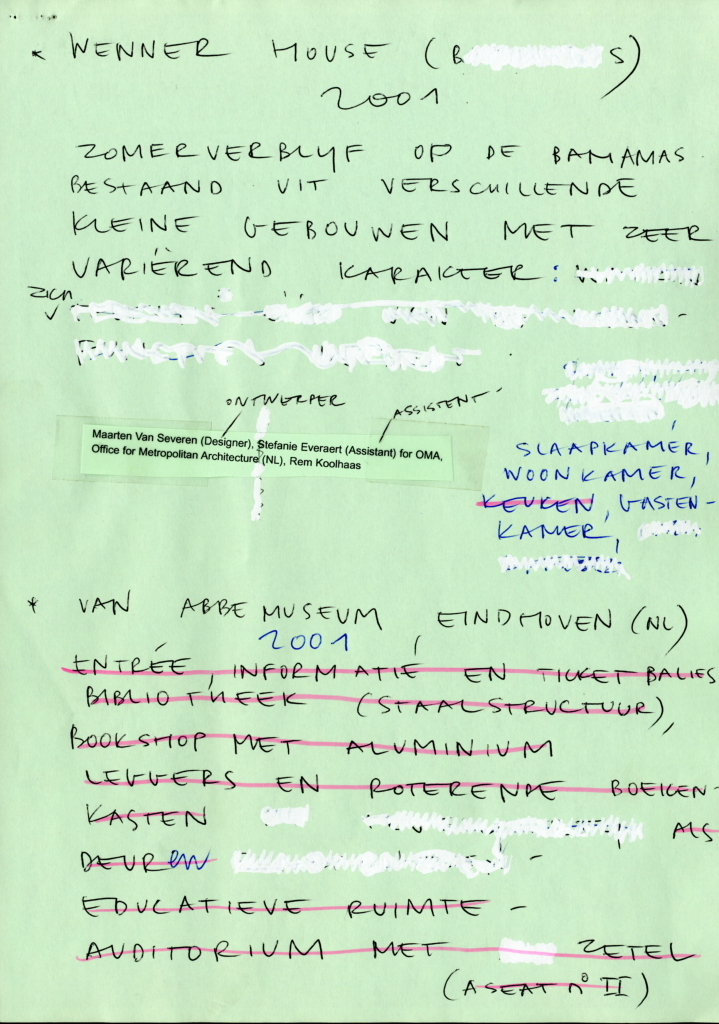 * WENNER HOUSE (B S)
2001
ZOMERVERBLYF OP DE BAHAMAS
BESTAAND UIT VERSCHILLENDE
KLEINE GEBOUWEN MET ZEER
VARIËREND KARAKTER:
ZICH
ONTWERPER
ASSISTENT
Maarten Van Severen (Designer), Stefanie Everaert (Assistant) for OMA,
Office for Metropolitan Architecture (NL), Rem Koolhaas
SLAAPKAMER,
WOONKAMER,
KEUKEN, GASTEN-
KAMER,
* VAN ABBEMUSEUM, EINDHOVEN (NL)
2001
ENTRÉE, INFORMATIE EN TICKETBALIES
BIBLIOTHEEK (STAALSTRUCTUUR),
BOOKSHOP MET ALUMINIUM
LEGGERS EN ROTERENDE BOEKEN-
KASTEN ALS
DEUR en -
EDUCATIEVE RUIMTE -
AUDITORIUM MET ZETEL
(ASEAT n° II)